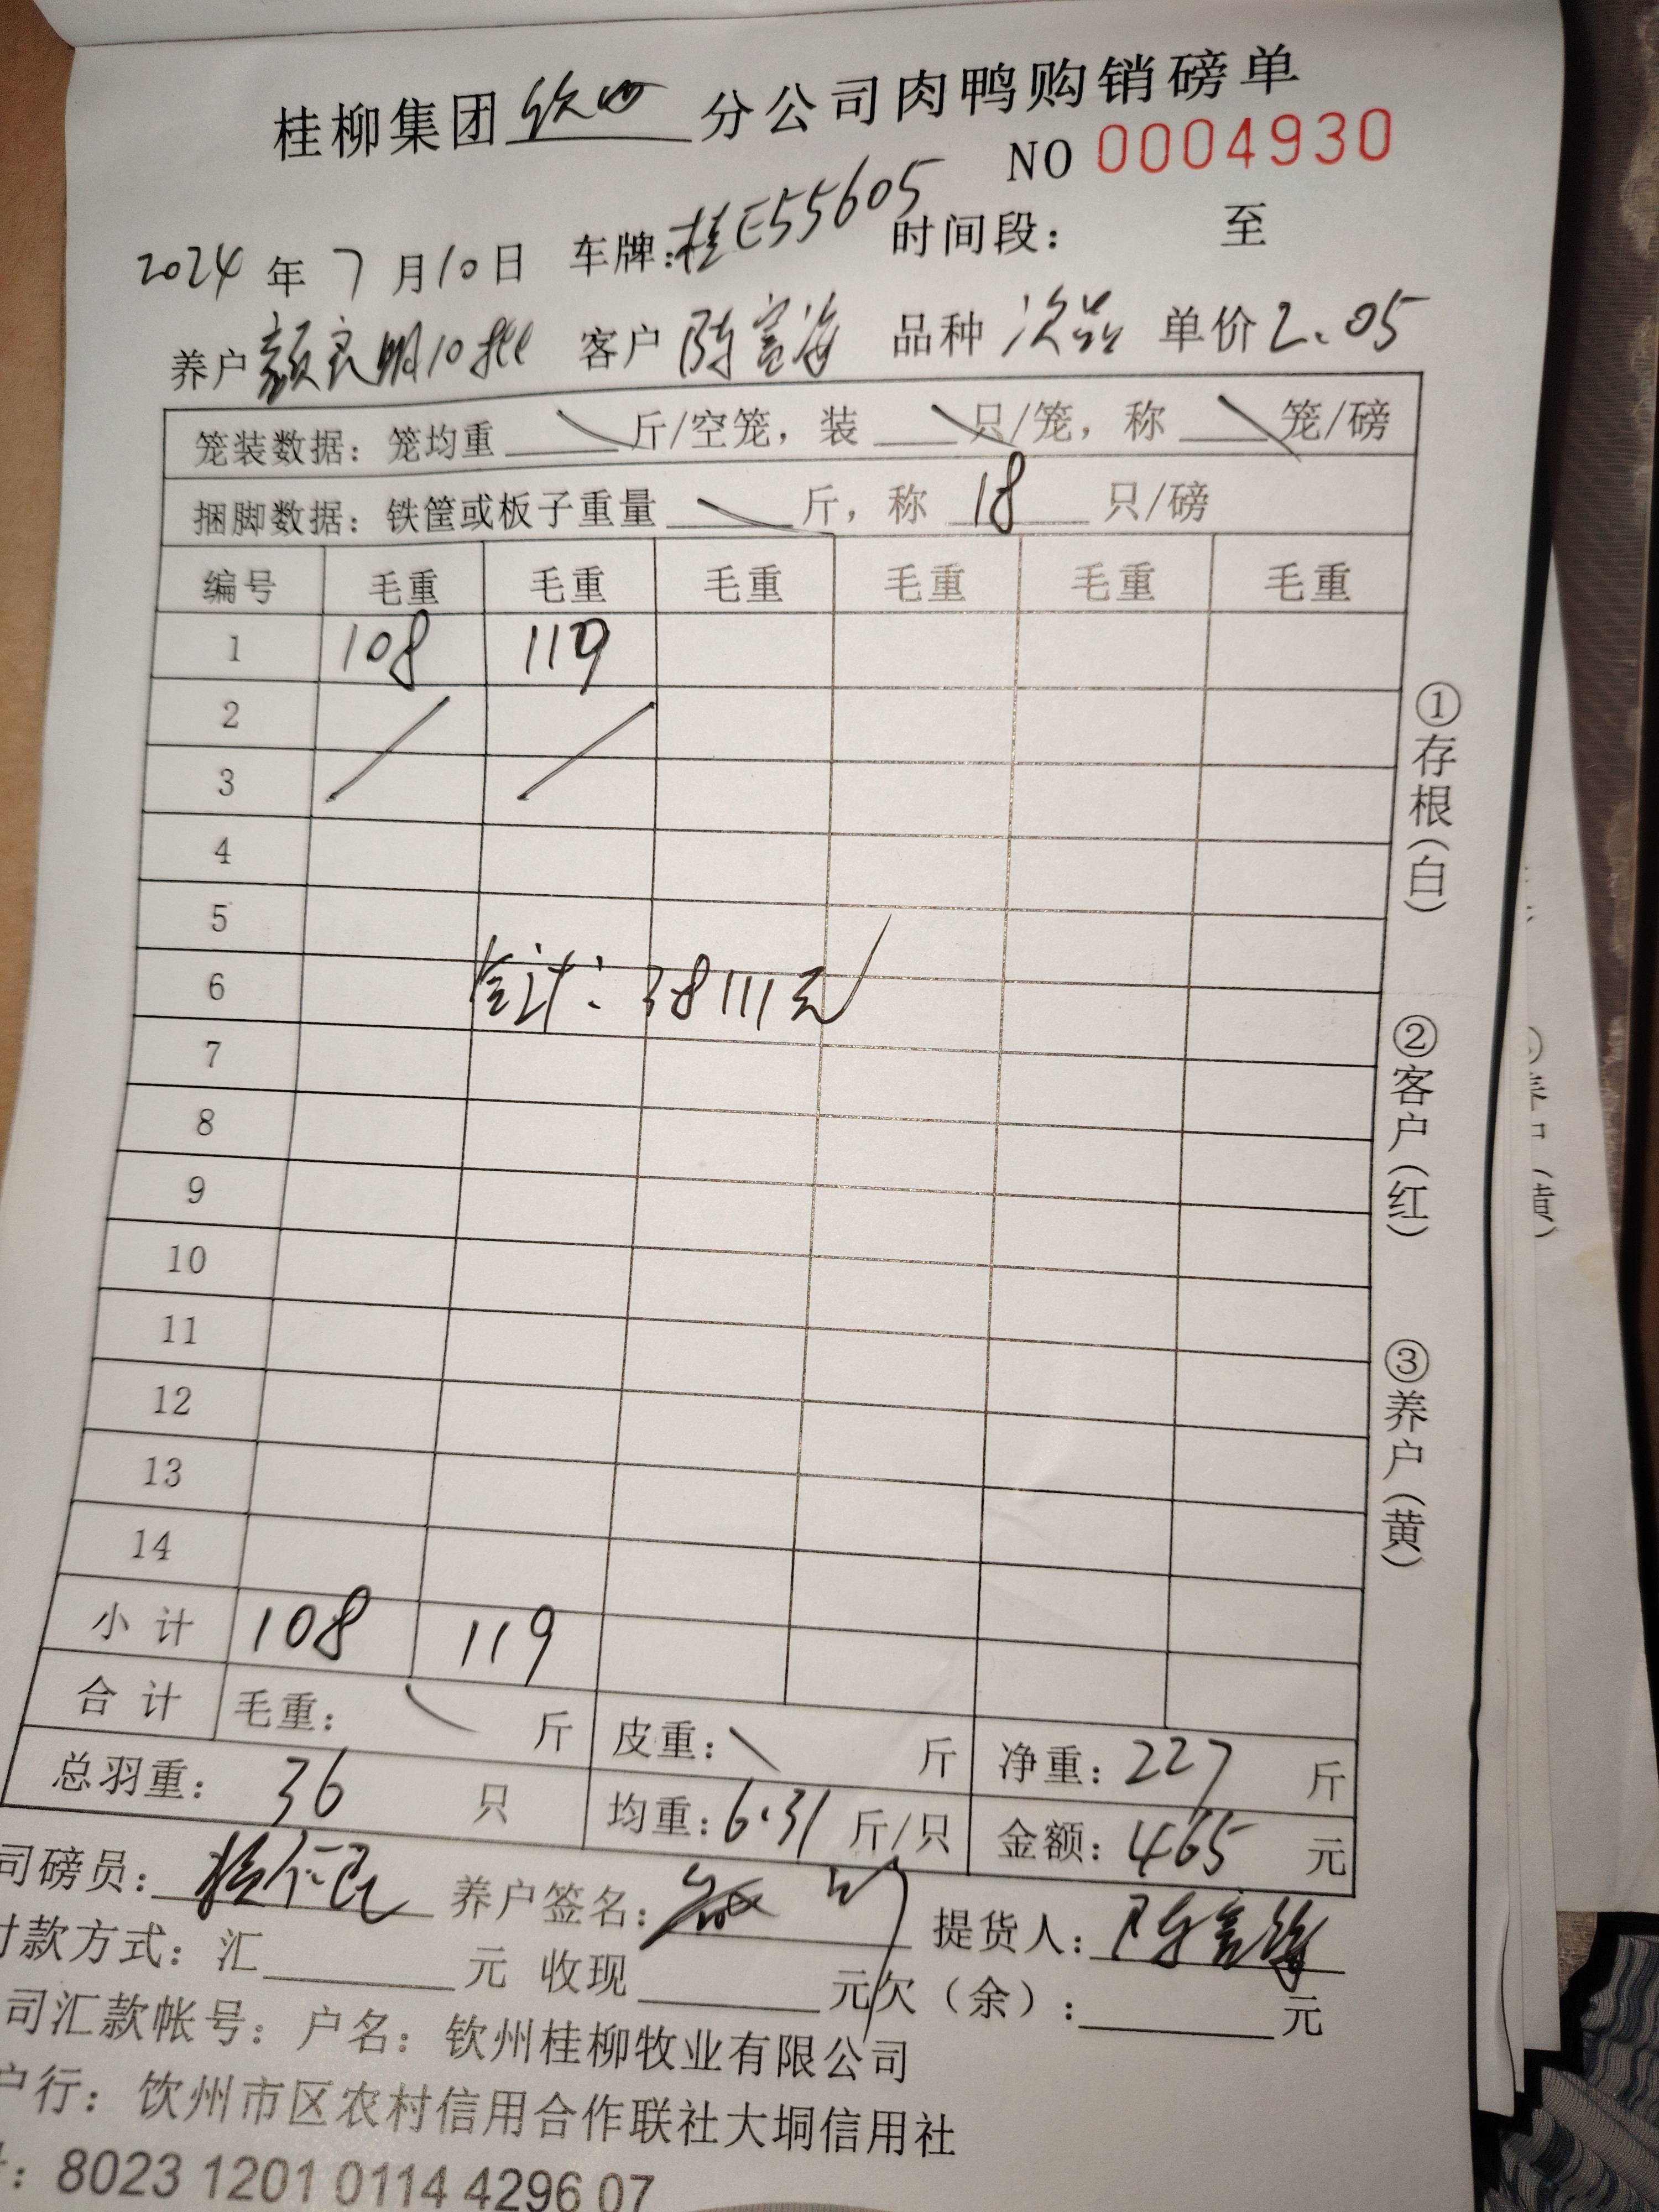 桂柳集团 钦四 分公司肉鸭购销磅单
NO 0004930
2024 年 7 月 10 日 车牌:桂E55605 时间段: 至
养户 颜良明10批 客户 陈富海 品种 次品 单价 2.05
笼装数据: 笼均重 斤/空笼, 装 只/笼, 称 笼/磅
捆脚数据: 铁筐或板子重量 斤, 称 18 只/磅
编号 毛重 毛重 毛重 毛重 毛重 毛重
1 108 119
2
3
4
5
6 合计: 38111元
7
8
9
10
11
12
13
14
小计 108 119
合计 毛重: 斤 皮重: 斤 净重: 227 斤
总羽重: 36 只 均重: 6.31 斤/只 金额: 465 元
司磅员: 养户签名: 提货人: 陈富海
付款方式: 汇 元 收现 元 欠(余): 元
司汇款帐号: 户名: 钦州桂柳牧业有限公司
户行: 饮州市区农村信用合作联社大垌信用社
: 8023 1201 0114 4296 07
①存根(白)
②客户(红)
③养户(黄)